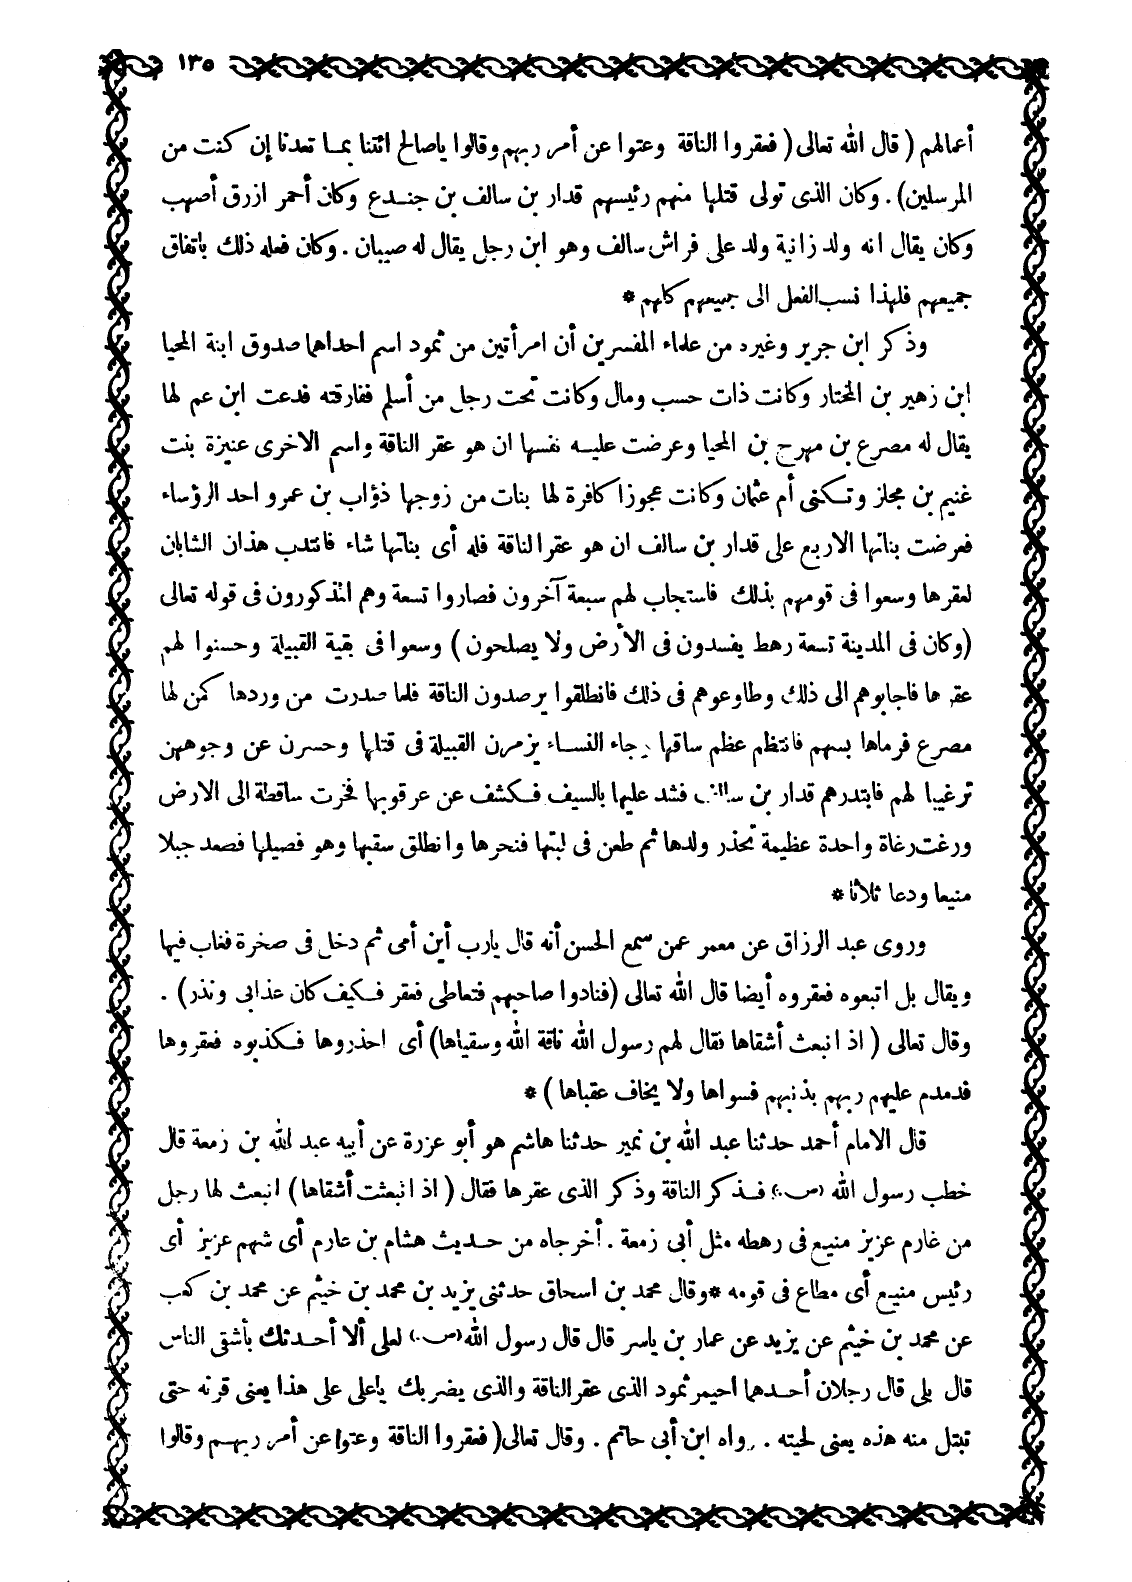 ١٣٥
أعمالهم ( قال الله تعالى ( فعقروا الناقة وعتوا عن أمر ربهم وقالوا ياصالح ائتنا بمـا تعدنا إن كنت من
المرسلين) . وكان الذى تولى قتلها منهم رئيسهم قدار بن سالف بن جنـدع وكان أحمر ازرق أصهب
وكان يقال انه ولد زانية ولد على فراش سالف وهو ابن رجل يقال له صيبان . وكان فعله ذلك باتفاق
جميعهم فلهذا نسب الفعل الى جميعهم كلهم *
وذكر ابن جرير وغيره من علماء المفسرين أن امرأتين من ثمود اسم احداهما صدوق ابنة المحيا
ابن زهير بن المختار وكانت ذات حسب ومال وكانت تحت رجل من أسلم ففارقته فدعت ابن عم لها
يقال له مصرع بن مهرج بن المحيا وعرضت عليـه نفسها ان هو عقر الناقة واسم الاخرى عنيزة بنت
غنيم بن مجلز وتـكنى أم عثمان وكانت عجوزا كافرة لها بنات من زوجها ذؤاب بن عمرو احد الرؤساء
فعرضت بناتها الاربع على قدار بن سالف ان هو عقر الناقة فله أى بناتها شاء فانتدب هذان الشابان
لعقرها وسعوا فى قومهم بذلك فاستجاب لهم سبعة آخرون فصاروا تسعة وهم المذكورون فى قوله تعالى
(وكان فى المدينة تسعة رهط يفسدون فى الأرض ولا يصلحون ) وسعوا فى بقية القبيلة وحسنوا لهم
عقرها فاجابوهم الى ذلك وطاوعوهم فى ذلك فانطلقوا يرصدون الناقة فلما صدرت من وردها كمن لها
مصرع فرماها بسهم فانتظم عظم ساقها وجاء النسـاء يزمرن القبيلة فى قتلها وحسرن عن وجوههن
ترغيبا لهم فابتدرهم قدار بن سالف فشد عليها بالسيف فـكشف عن عرقوبها فخرت ساقطة الى الارض
ورغت رغاة واحدة عظيمة تحذر ولدها ثم طعن فى لبتها فنحرها وانطلق سقبها وهو فصيلها فصعد جبلا
منيعا ودعا ثلاثا *
وروى عبد الرزاق عن معمر عمن سمع الحسن أنه قال يارب أين أمى ثم دخل فى صخرة فغاب فيها
ويقال بل اتبعوه فعقروه أيضا قال الله تعالى (فنادوا صاحبهم فتعاطى فعقر فـكيف كان عذابى ونذر) .
وقال تعالى ( اذ انبعث أشقاها نقال لهم رسول الله ناقة الله وسقياها) أى احذروها فـكذبوه فعقروها
فدمدم عليهم ربهم بذنبهم فسواها ولا يخاف عقباها ) *
قال الامام أحمد حدثنا عبد الله بن نمير حدثنا هاشم هو أبو عزرة عن أبيه عبد الله بن زمعة قال
خطب رسول الله (ص.) فـذكر الناقة وذكر الذى عقرها فقال ( اذ انبعثت أشقاها ) انبعث لها رجل
من غارم عزيز منيـع فى رهطه مثل أبى زمعة . أخرجاه من حـديث هشام بن عارم أى شهم عزيز أى
رئيس منيـع أى مطاع فى قومه * وقال محمد بن اسحاق حدثنى يزيد بن محمد بن خيثم عن محمد بن كعب
عن محمد بن خيثم عن يزيد عن عمار بن ياسر قال قال رسول الله (ص.) لعلى ألا أحـدثك بأشقى الناس
قال بلى قال رجلان أحـدهما احيمر ثمود الذى عقر الناقة والذى يضربك ياعلى على هذا يعنى قرنه حتى
تبتل منه هذه يعنى لحيته . رواه ابن أبى حاتم . وقال تعالى ( فعقروا الناقة وعتوا عن أمر ربهـم وقالوا